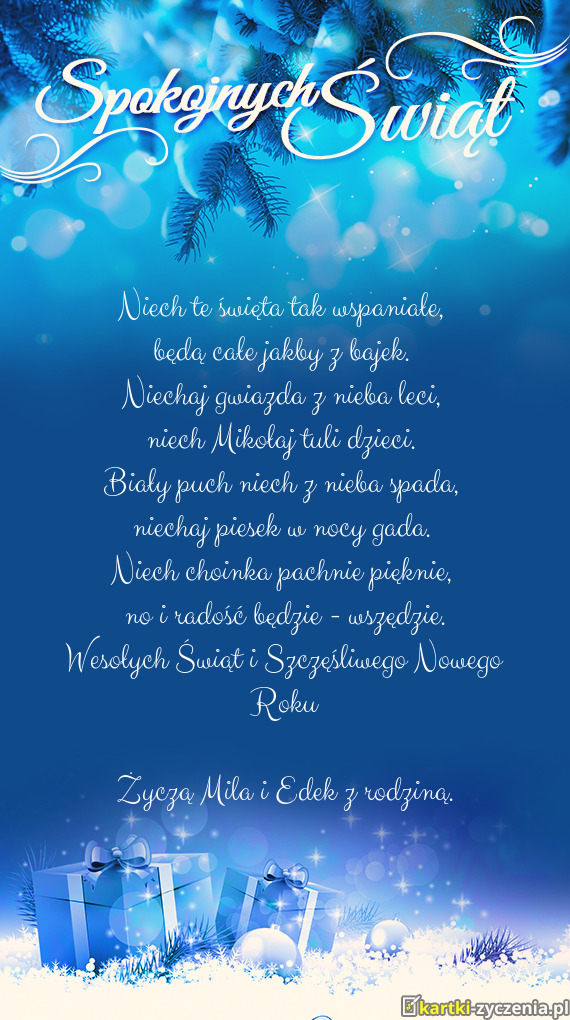 Spokojnych Świąt
Niech te święta tak wspaniałe,
będą całe jakby z bajek.
Niechaj gwiazda z nieba leci,
niech Mikołaj tuli dzieci.
Biały puch niech z nieba spada,
niechaj piesek w nocy gada.
Niech choinka pachnie pięknie,
no i radość będzie - wszędzie.
Wesołych Świąt i Szczęśliwego Nowego
Roku
Życzą Mila i Edek z rodziną.
kartki-zyczenia.pl